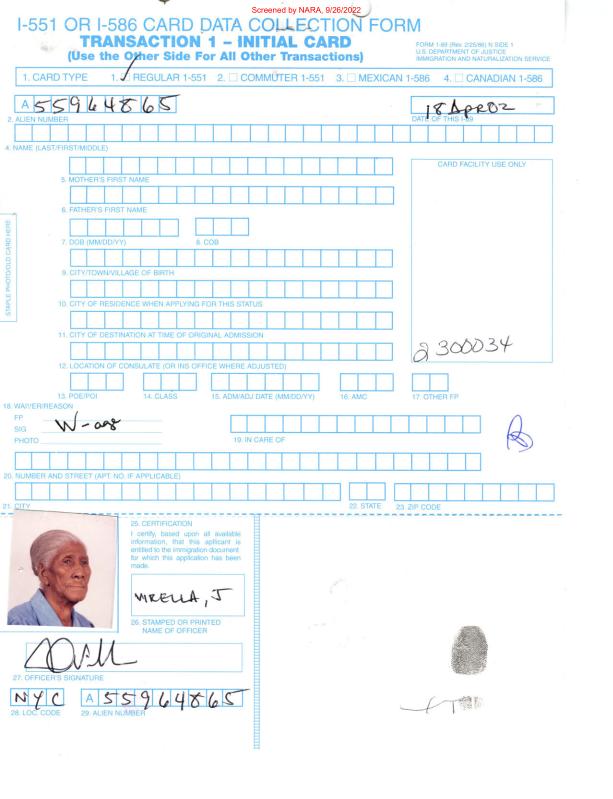 Screened by NARA, 9/26/2022
I-551 OR I-586 CARD DATA COLLECTION FORM
TRANSACTION 1 – INITIAL CARD
(Use the Other Side For All Other Transactions)
FORM 1-89 (Rev. 2/25/88) N SIDE 1
U.S. DEPARTMENT OF JUSTICE
IMMIGRATION AND NATURALIZATION SERVICE
1. CARD TYPE 1. ✓ REGULAR 1-551 2. ☐ COMMUTER 1-551 3. ☐ MEXICAN 1-586 4. ☐ CANADIAN 1-586
A 55964865
18 APR 02
2. ALIEN NUMBER
DATE OF THIS I-89
4. NAME (LAST/FIRST/MIDDLE)
CARD FACILITY USE ONLY
5. MOTHER'S FIRST NAME
6. FATHER'S FIRST NAME
7. DOB (MM/DD/YY) 8. COB
STAPLE PHOTO/OLD CARD HERE
9. CITY/TOWN/VILLAGE OF BIRTH
10. CITY OF RESIDENCE WHEN APPLYING FOR THIS STATUS
11. CITY OF DESTINATION AT TIME OF ORIGINAL ADMISSION
2300034
12. LOCATION OF CONSULATE (OR INS OFFICE WHERE ADJUSTED)
13. POE/POI 14. CLASS 15. ADM/ADJ DATE (MM/DD/YY) 16. AMC 17. OTHER FP
18. WAIVER/REASON
FP
SIG W-age
PHOTO
19. IN CARE OF
20. NUMBER AND STREET (APT. NO. IF APPLICABLE)
21. CITY 22. STATE 23. ZIP CODE
25. CERTIFICATION
I certify, based upon all available
information, that this applicant is
entitled to the immigration document
for which this application has been
made.
VIRELLA, J
26. STAMPED OR PRINTED
NAME OF OFFICER
27. OFFICER'S SIGNATURE
NYC A 55964865
28. LOC. CODE 29. ALIEN NUMBER